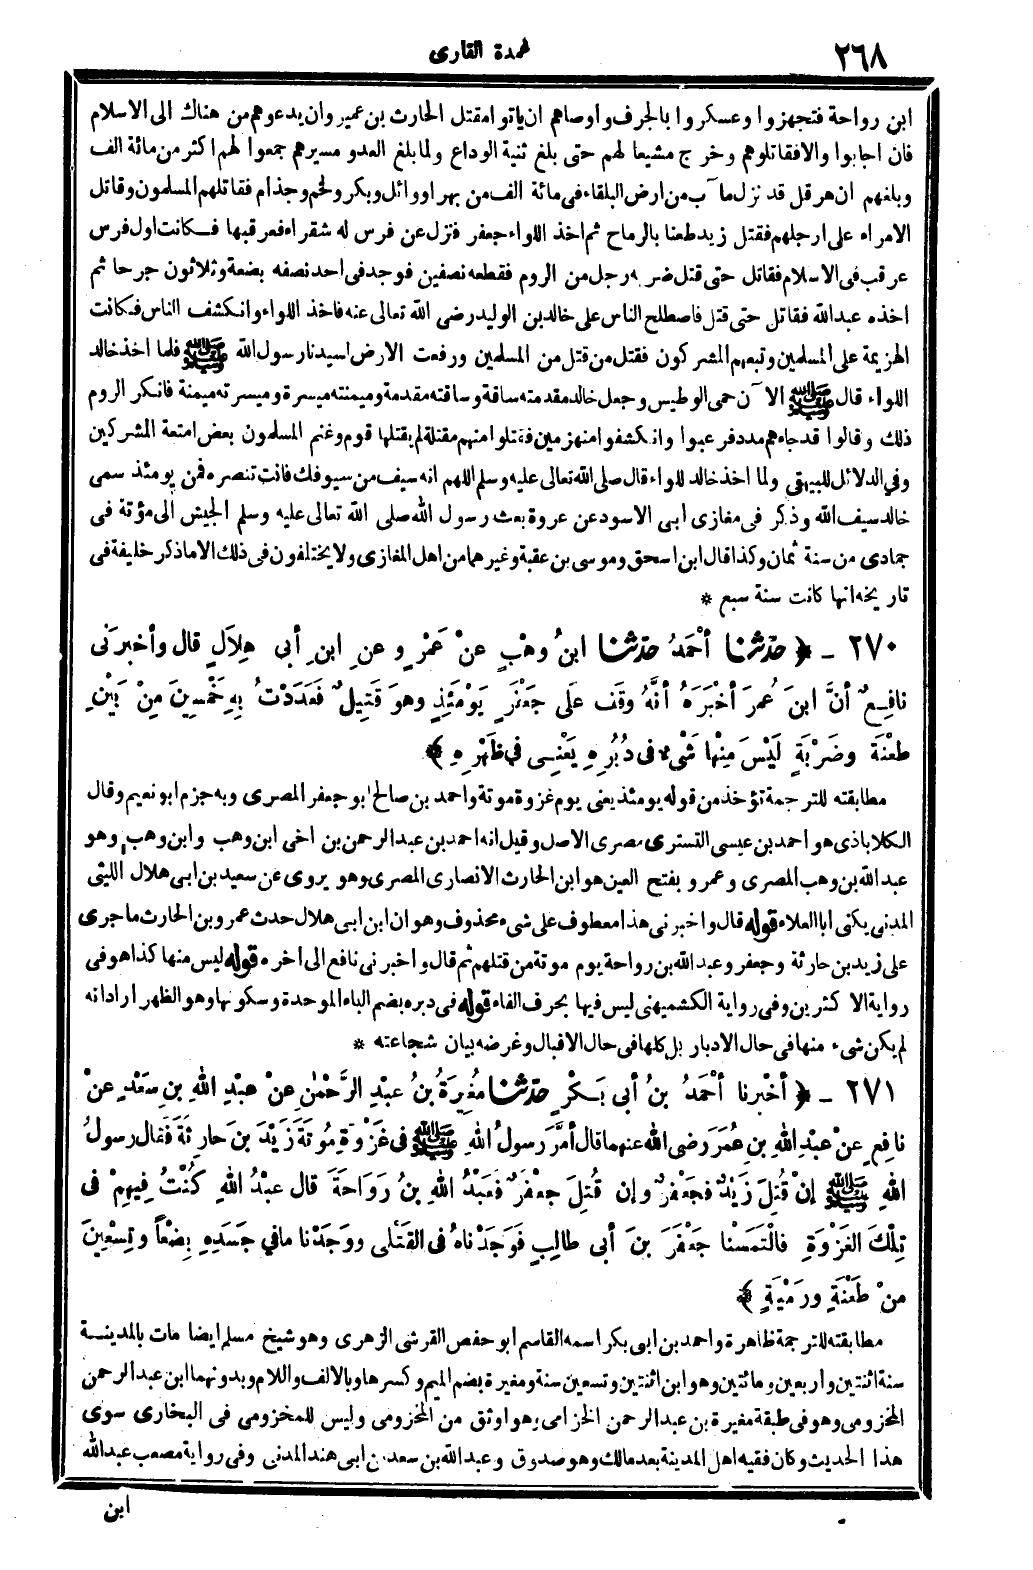 ٢٦٨
عمدة القارى
ابن رواحة فتجهزوا وعسكروا بالجرف وأوصاهم ان ياتوا مقتل الحارث بن عمير وان يدعوهم من هناك الى الاسلام
فان اجابوا والا فقاتلوهم وخرج مشيعا لهم حتى بلغ ثنية الوداع ولما بلغ العدو مسيرهم جمعوا لهم اكثر من مائة الف
وبلغهم ان هرقل قد نزل مآب من ارض البلقاء فى مائة الف من بهرا ووائل وبكر ولخم وجذام فقاتلهم المسلمون وقاتل
الامراء على ارجلهم فقتل زيد طعنا بالرماح ثم اخذ اللواء جعفر فنزل عن فرس له شقراء فعرقبها فكانت اول فرس
عرقب فى الاسلام فقاتل حتى قتل ضربه رجل من الروم فقطعه نصفين فوجد فى احد نصفه بضعة وثلاثون جرحا ثم
اخذه عبدالله فقاتل حتى قتل فاصطلح الناس على خالد بن الوليد رضى الله تعالى عنه فاخذ اللواء وانكشف الناس فكانت
الهزيمة على المسلمين وتبعهم المشركون فقتل من قتل من المسلمين ورفعت الارض لسيدنا رسول الله ﷺ فلما اخذ خالد
اللواء قال ﷺ الآن حمى الوطيس وجعل خالد مقدمته ساقة وساقته مقدمة وميمنته ميسرة وميسرته ميمنة فانكر الروم
ذلك وقالوا قد جاءهم مدد فرعبوا وانكشفوا منهزمين فقتلوا منهم مقتلة لم يقتلها قوم وغنم المسلمون بعض امتعة المشركين
وفي الدلائل للبيهقي ولما اخذ خالد اللواء قال صلى الله تعالى عليه وسلم اللهم انه سيف من سيوفك فانت تنصره فمن يومئذ سمى
خالد سيف الله وذكر فى مغازى ابى الاسود عن عروة بعث رسول الله صلى الله تعالى عليه وسلم الجيش الى مؤتة فى
جمادى من سنة ثمان وكذا قال ابن اسحق وموسى بن عقبة وغيرهما من اهل المغازى ولا يختلفون فى ذلك الا ما ذكر خليفة فى
تاريخه انها كانت سنة سبع *
٢٧٠ - ﴿ حدّثنا أحْمَدُ حدّثنا ابنُ وهْبٍ عنْ عَمْرٍو عنِ ابنِ أبى هِلاَلٍ قال وأخبرَنى
نافِعٌ أنَّ ابنَ عُمرَ أخْبَرَهُ أنَّهُ وقَفَ عَلَى جَعْفَرٍ يَوْمَئِذٍ وهوَ قَتِيلٌ فَعَدَدْتُ بِهِ خَمْسِينَ مِنْ بَيْنِ
طَعْنَةٍ وضَرْبَةٍ لَيْسَ مِنْها شَىْءٌ فى دُبُرِهِ يَعْنِى في ظَهْرِهِ ﴾
مطابقته للترجمة تؤخذ من قوله يومئذ يعنى يوم غزوة موتة واحمد بن صالح ابو جعفر المصرى وبه جزم ابو نعيم وقال
الكلاباذى هو احمد بن عيسى التسترى مصرى الاصل وقيل انه احمد بن عبد الرحمن بن اخى ابن وهب وابن وهب وهو
عبد الله بن وهب المصرى وعمرو بفتح العين هو ابن الحارث الانصارى المصرى وهو يروى عن سعيد بن ابى هلال الليثى
المدنى يكنى ابا العلاء قوله قال واخبرنى هذا معطوف على شىء محذوف وهو ان ابن ابى هلال حدث عمرو بن الحارث ما جرى
على زيد بن حارثة وجعفر وعبد الله بن رواحة يوم موتة من قتلهم ثم قال واخبرنى نافع الى اخره قوله ليس منها كذا هو فى
رواية الاكثرين وفى رواية الكشميهنى ليس فيها بحرف الفاء قوله فى دبره بضم الباء الموحدة وسكونها وهو الظهر اراد انه
لم يكن شىء منها فى حال الادبار بل كلها فى حال الاقبال وغرضه بيان شجاعته *
٢٧١ - ﴿ أخْبرنا أحْمَدُ بنُ أبى بَكْرٍ حدّثنا مُغِيرَةُ بنُ عبْدِ الرَّحْمٰنِ عنْ عبْدِ اللهِ بنِ سَعْدٍ عنْ
نافِعٍ عنْ عبْدِ اللهِ بنِ عُمَرَ رضى الله عنهما قال أمَّرَ رسولُ اللهِ ﷺ فى غَزْوَةِ مُوتَةَ زَيْدَ بنَ حارِثَةَ فَقال رسولُ
اللهِ ﷺ إنْ قُتِلَ زَيْدٌ فَجَعْفَرٌ وإن قُتِلَ جعْفَرٌ فَعبْدُ اللهِ بنُ رَوَاحَةَ قال عبْدُ اللهِ كُنْتُ فِيهِمْ فى
تِلْكَ الغَزْوَةِ فالْتَمَسْنا جَعْفَرَ بنَ أبى طالِبٍ فَوَجَدْناهُ فى القَتْلَى ووَجَدْنا مافي جَسَدِهِ بِضْعاً وتِسْعِينَ
مِنْ طَعْنَةٍ ورَمْيَةٍ ﴾
مطابقته للترجمة ظاهرة واحمد بن ابى بكر اسمه القاسم ابو حفص القرشى الزهرى وهو شيخ مسلم ايضا مات بالمدينة
سنة اثنتين واربعين ومائتين وهو ابن اثنتين وتسعين سنة ومغيرة بضم الميم وكسرها وبالالف واللام وبدونهما ابن عبد الرحمن
المخزومى وهو فى طبقة مغيرة بن عبد الرحمن الخزامى وهو اوثق من المخزومى وليس للمخزومى فى البخارى سوى
هذا الحديث وكان فقيه اهل المدينة بعد مالك وهو صدوق وعبد الله بن سعد بن ابى هند المدنى وفى رواية مصعب عبد الله
ابن